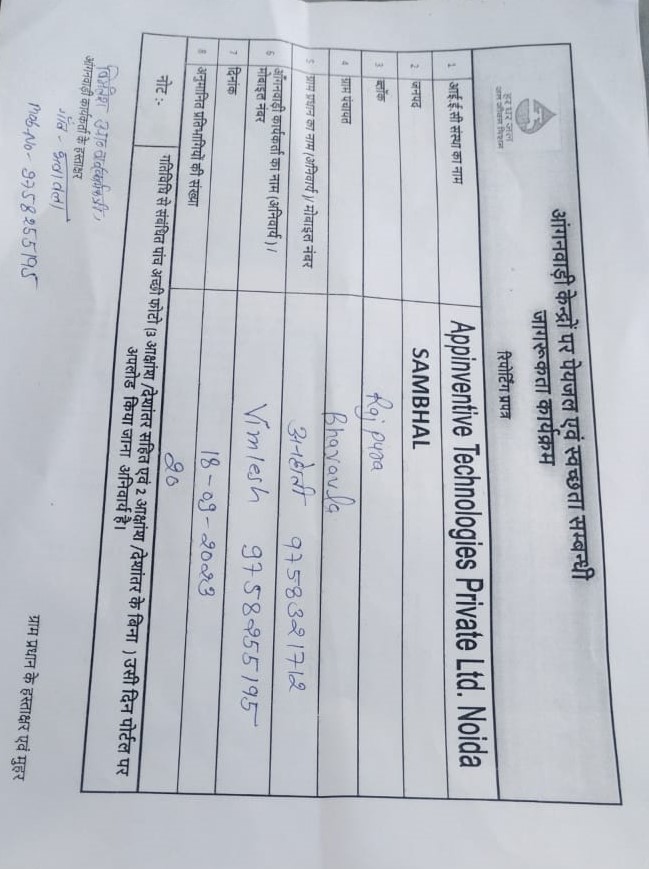 हर घर जल
जल जीवन मिशन
आंगनवाड़ी केन्द्रों पर पेयजल एवं स्वच्छता सम्बन्धी
जागरुकता कार्यक्रम
रिपोर्टिंग प्रपत्र
1 आई.ई.सी संस्था का नाम Appinventive Technologies Private Ltd. Noida
2 जनपद SAMBHAL
3 ब्लॉक Rajpura
4 ग्राम पंचायत Bharavla
5 ग्राम प्रधान का नाम (अनिवार्य )/ मोबाइल नंबर 9758321712
6 आँगनवाड़ी कार्यकर्ता का नाम (अनिवार्य ) /
मोबाइल नंबर Vimlesh 9758255195
7 दिनांक 18-09-2023
8 अनुमानित प्रतिभागियों की संख्या 20
नोट :- गतिविधि से संबंधित पांच अच्छी फोटो (3 आक्षांश /देशांतर सहित एवं 2 आक्षांश /देशांतर के बिना ) उसी दिन पोर्टल पर
अपलोड किया जाना अनिवार्य है।
आंगनवाड़ी कार्यकर्ता के हस्ताक्षर
गांव -
mob.No - 9758255195
ग्राम प्रधान के हस्ताक्षर एवं मुहर